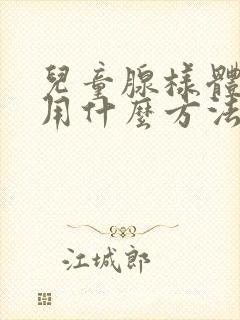 兒童腺樣體
用什麼方法
江城郎